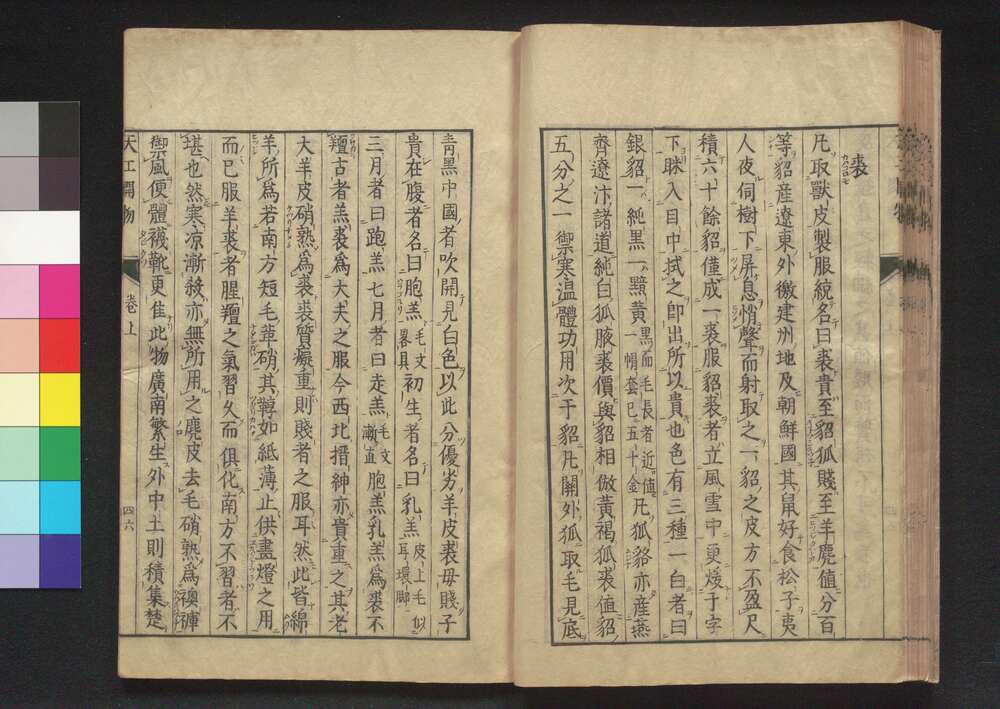 裘
凡取獸皮製服統名曰裘貴至貂狐賤至羊麂值分百
等貂産遼東外徼建州地及朝鮮國其鼠好食松子夷
人夜伺樹下屏息悄聲而射取之一貂之皮方不盈尺
積六十餘貂僅成一裘服貂裘者立風雪中更煖于宇
下眯入目中拭之即出所以貴也色有三種一白者曰
銀貂一純黒一黯黄黒而毛長者近值一帽套已五十金凡狐貉亦産燕
齊遼汴諸道純白狐腋裘價與貂相倣黄褐狐裘值貂
五分之一禦寒温體功用次于貂凡關外狐取毛見底
青黒中國者吹開見白色以此分優劣羊皮裘母賤子
貴在腹者名曰胞羔毛文畧具初生者名曰乳羔皮上毛似耳環脚
三月者曰跑羔七月者曰走羔毛文漸直胞羔乳羔爲裘不
羶古者羔裘爲大夫之服今西北搢紳亦貴重之其老
大羊皮硝熟爲裘裘質癡重則賤者之服耳然此皆綿
羊所爲若南方短毛革硝其鞟如紙薄止供畫燈之用
而已服羊裘者腥羶之氣習久而俱化南方不習者不
堪也然寒凉漸殺亦無所用之麂皮去毛硝熟爲襖褲
禦風便體襪靴更佳此物廣南繁生外中土則積集楚
天工開物
卷上
四六